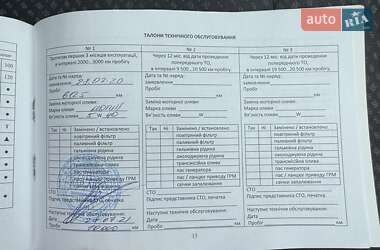 AUTO RIA
ТАЛОНИ ТЕХНІЧНОГО ОБСЛУГОВУВАННЯ
№ 1
Протягом перших 3 місяців експлуатації,
в інтервалі 2000...3000 км пробігу
Дата та № наряд-
замовлення
Пробіг 605 км
Заміна моторної оливи
Марка оливи
В'язкість оливи 5 W 40
Так Ні Замінено / встановлено
повітряний фільтр
паливний фільтр
гальмівна рідина
охолоджуюча рідина
трансмісійна олива
пас генератора
пас / ланцюг приводу ГРМ
свічки запалювання
СТО
Підпис представника СТО, печатка
Наступне технічне обслуговування:
Дата
Пробіг 10000 км
№ 2
Через 12 міс. від дати проведення
попереднього ТО,
в інтервалі 9 500...10 500 км пробігу
Дата та № наряд-
замовлення
Пробіг км
Заміна моторної оливи
Марка оливи
В'язкість оливи W
Так Ні Замінено / встановлено
повітряний фільтр
паливний фільтр
гальмівна рідина
охолоджуюча рідина
трансмісійна олива
пас генератора
пас / ланцюг приводу ГРМ
свічки запалювання
СТО
Підпис представника СТО, печатка
Наступне технічне обслуговування:
Дата
Пробіг км
№ 3
Через 12 міс. від дати проведення
попереднього ТО,
в інтервалі 19 500...20 500 км пробігу
Дата та № наряд-
замовлення
Пробіг км
Заміна моторної оливи
Марка оливи
В'язкість оливи W
Так Ні Замінено / встановлено
повітряний фільтр
паливний фільтр
гальмівна рідина
охолоджуюча рідина
трансмісійна олива
пас генератора
пас / ланцюг приводу ГРМ
свічки запалювання
СТО
Підпис представника СТО, печатка
Наступне технічне обслуговування:
Дата
Пробіг км